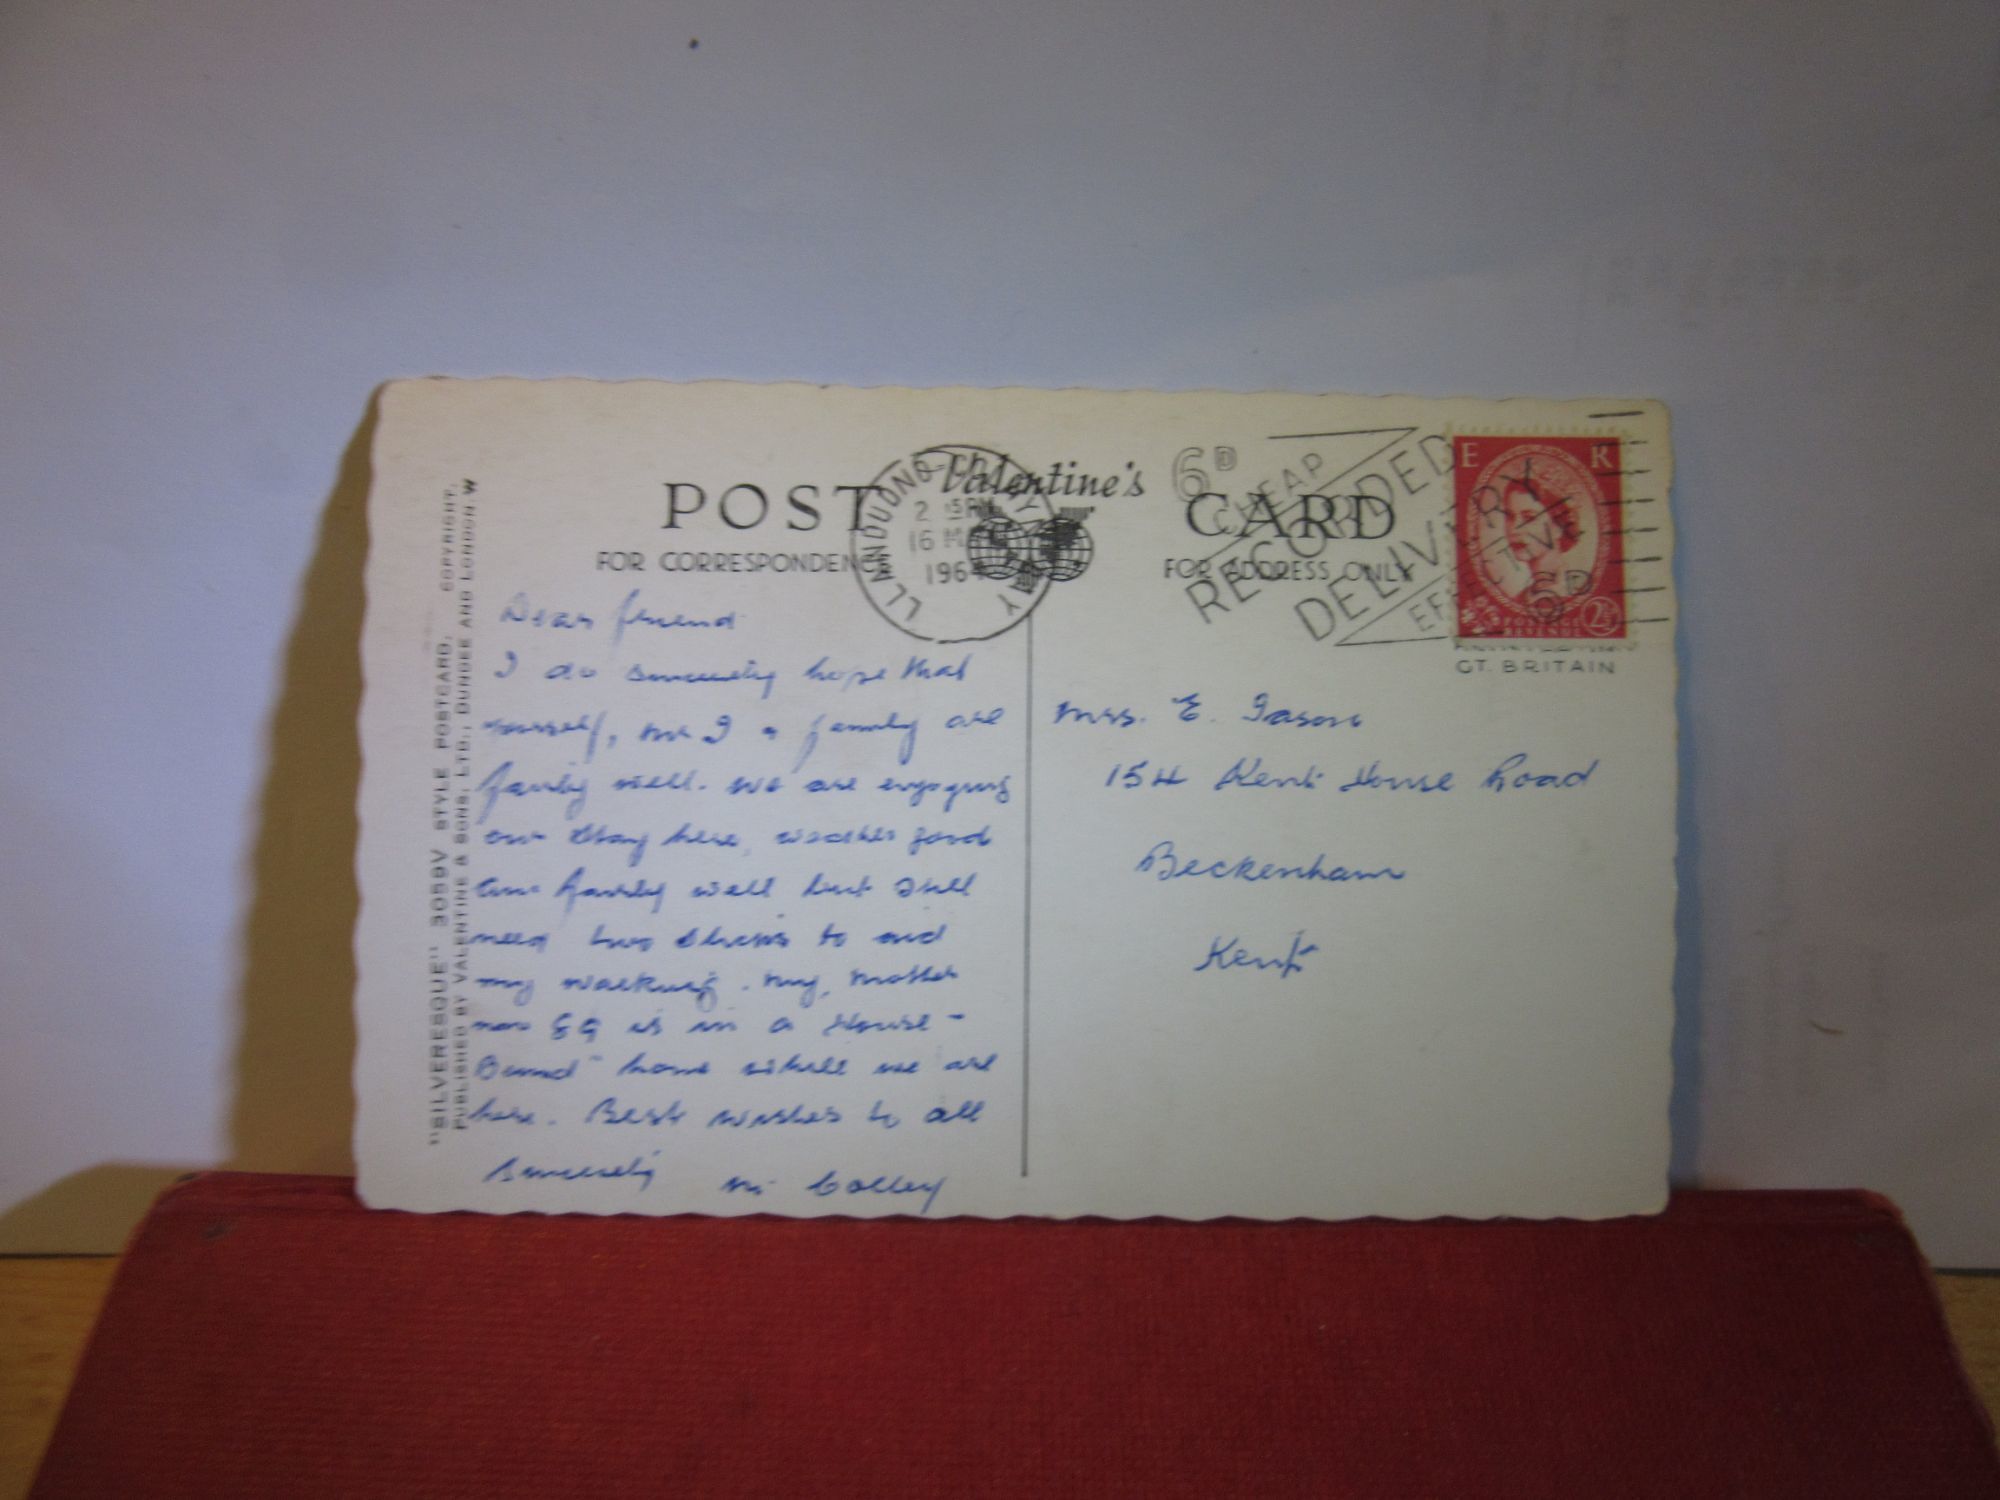 POST Valentine's CARD
FOR CORRESPONDENCE
FOR ADDRESS ONLY
LLANDUDNO-COLWYN BAY
2 15 PM
16 M
1964
6D
CHEAP
RECORDED
DELIVERY
EFFECTIVE
6D
E R
POSTAGE
REVENUE
2½
GT. BRITAIN
COPYRIGHT.
"SILVERESQUE" 3059V STYLE POSTCARD.
PUBLISHED BY VALENTINE & SONS, LTD., DUNDEE AND LONDON W
Dear friend
I do sincerely hope that
yourself, Mr J & family are
fairly well. We are enjoying
our stay here, weather good
am fairly well but still
need two sticks to aid
my walking. My Mother
now 89 is in a House-
Bound home whilst we are
here. Best wishes to all
Sincerely Colley
Mrs. E. Jason
154 Kent House Road
Beckenham
Kent